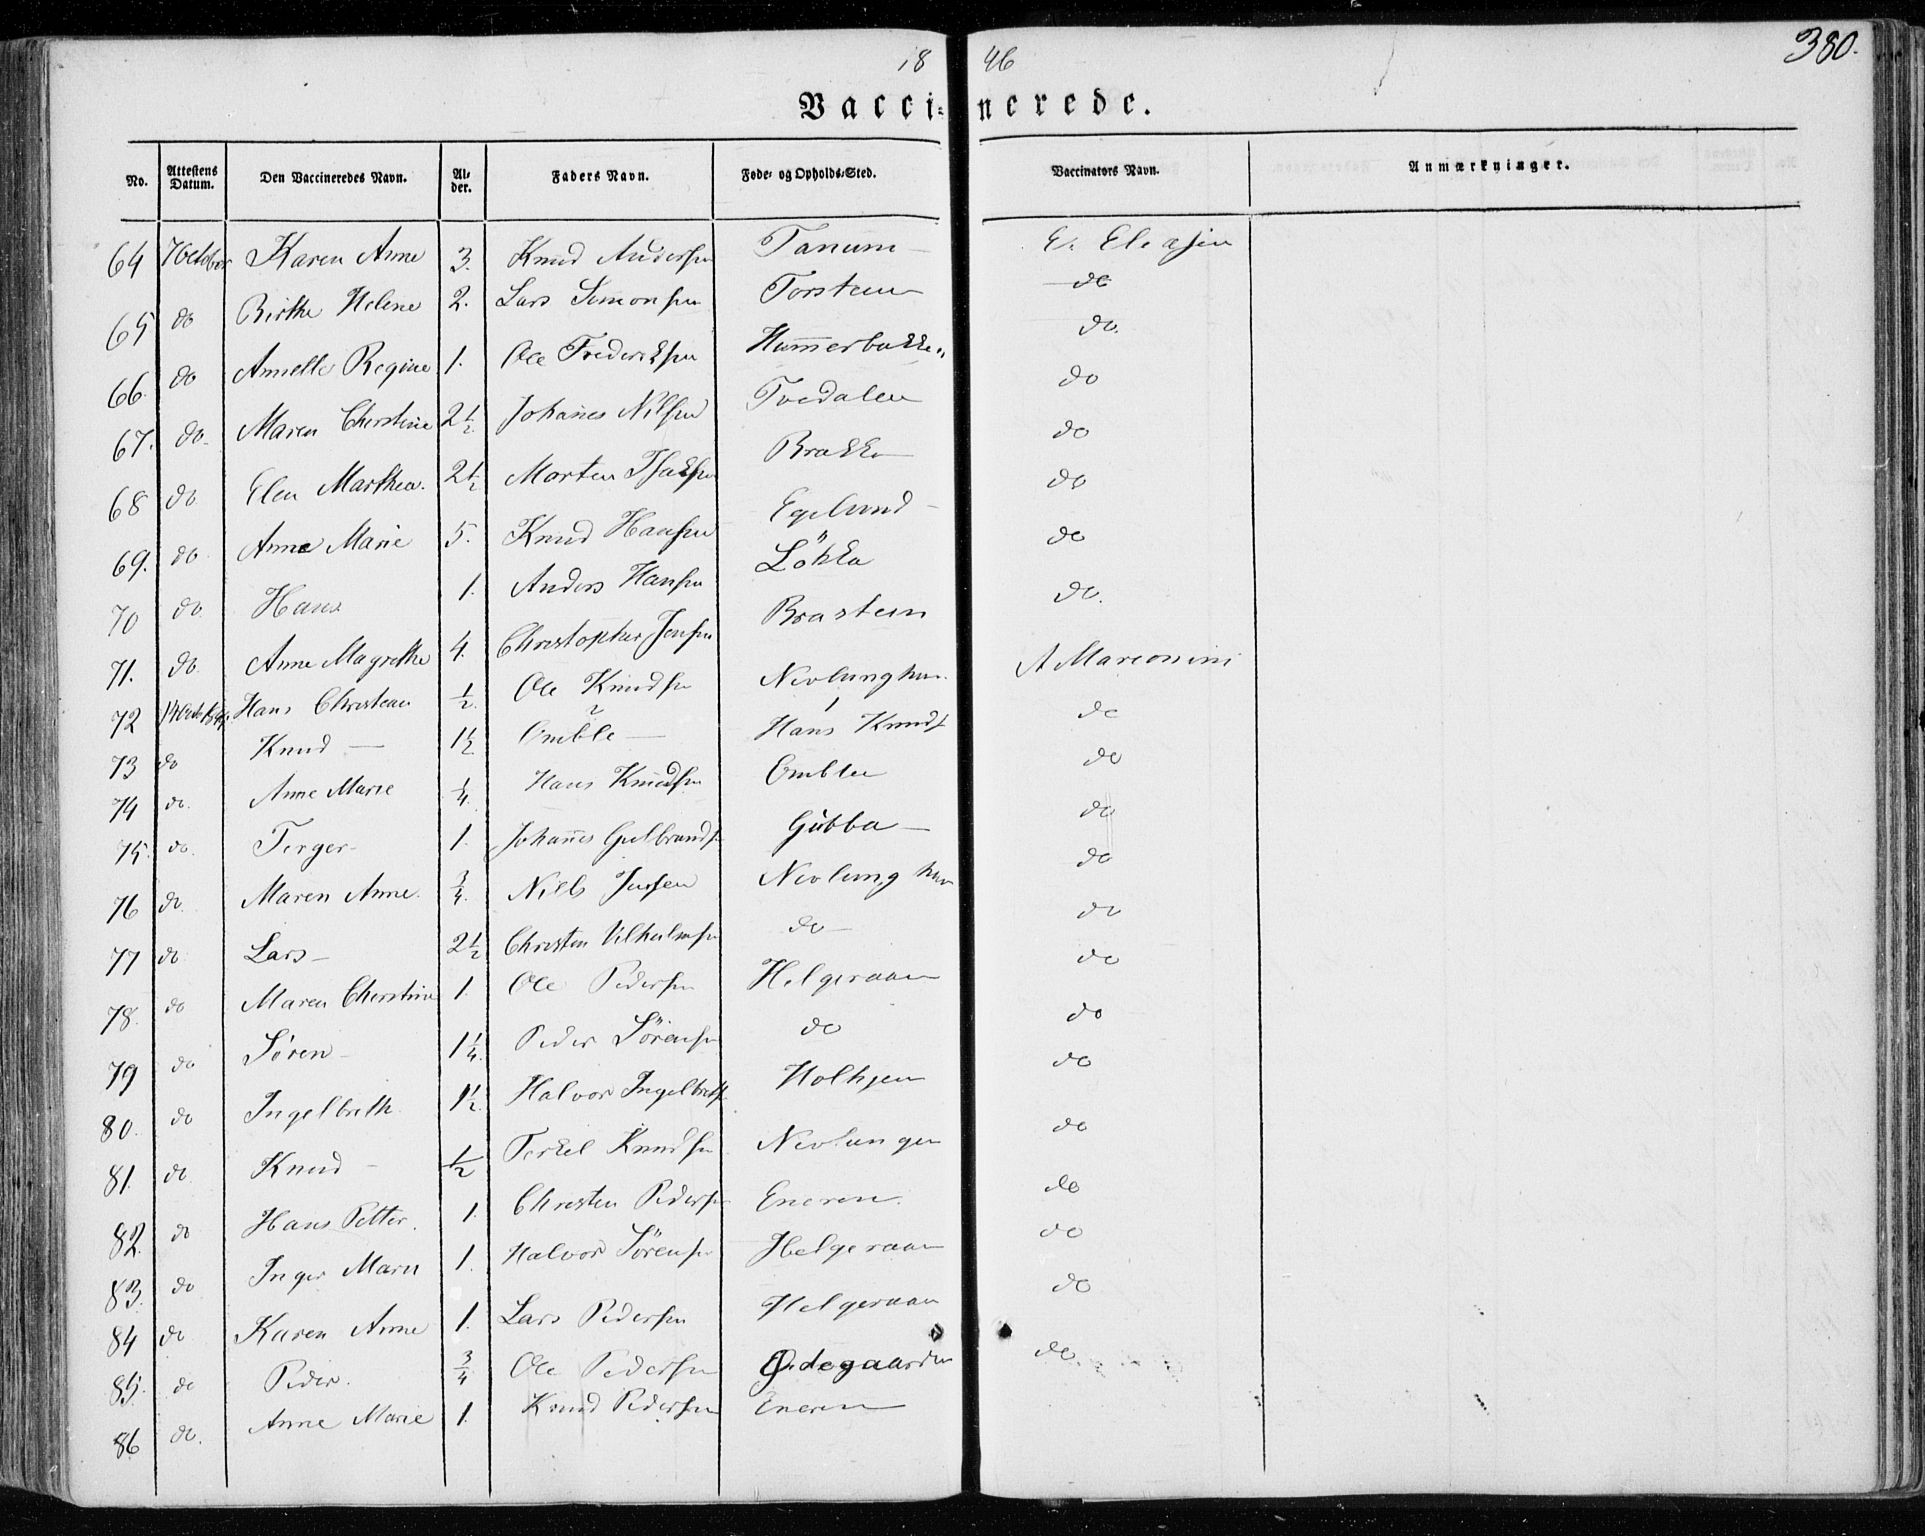 18 46
380.
Vacci- nerede.
No. Attestens Datum. Den Vaccineredes Navn. Al- der. Faders Navn. Føde- og Opholds-Sted. Vaccinators Navn. Anmærkninger.
64 7 October Karen Anne 3. Knud Andersen Tanum E. Eliasen
65 do Birthe Helene 2. Lars Simonsen Torstein do
66. do Annette Regine 1. Ole Frederiksen Hummerbakken do.
67. do. Maren Cherstine 2½ Johanes Nilsen Tvedalen do
68 do Elen Marthea. 2½ Morten Isaksen Brække do
69. do Anne Marie 5. Knud Hansen Egelund do
70 do. Hans 1. Anders Hansen Løkka do
71. do. Anne Magrethe 4. Christopher Jensen Brastein do.
72 14 October Hans Christian ½ Ole Knudsen Nevlunghavn A Marconini
73 do Knud 1½ Omble Hans Knuds do
74 do. Anne Marie ¼ Hans Knudsen Omblee do
75. do. Terger 1. Johanes Gulbrands Gubba do
76 do. Maren Anne. ¾ Nils Jensen Nevlunghavn do
77 do Lars 2½ Christen Vilhelmsen do do
78. do Maren Cherstine 1. Ole Pedersen Helgeraaen do
79 do Søren 1¼. Peder Sørensen do do
80. do Ingelbreth. 1½. Halvor Ingelbreths Holhjem do
81. do. Knud ½ Terkel Knudsen Nevlungen do
82. do Hans Petter. 1. Christen Pedersen Eneren. do
83. do Inger Marn 1. Halvor Sørensen Helgeraaen do
84 do Karen Anne 1. Lars Pedersen Helgeraaen do
85. do Peder. ¾ Ole Pedersen Ødegaarden do.
86 do. Anne Marie 1. Knud Pedersen Eneren